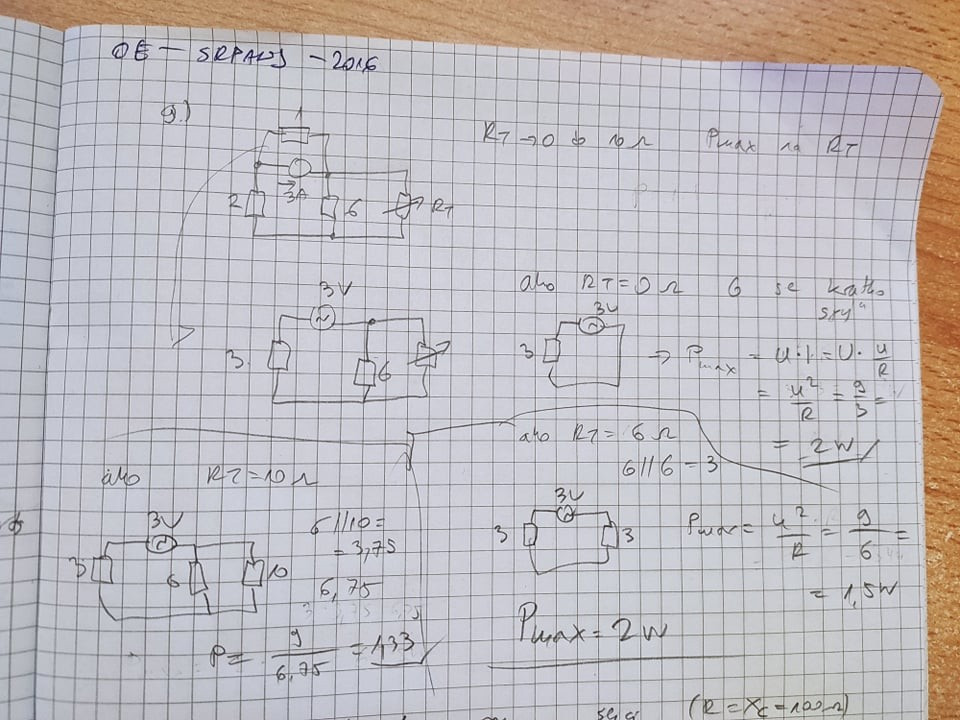 OE - SRPANJ - 2016
9.)
1
RT → 0 do 10 Ω Pmax na RT
2
3A
6
RT
3V
3
6
ako RT = 0 Ω 6 se kratko
3V
3
⇒ Pmax = U·I = U · U/R
= U²/R = 9/3 =
= 2W
ako RT = 6 Ω
6||6 = 3
3V
3
3
Pmax = U²/R = 9/6 =
= 1,5W
ako RT = 10 Ω
3V
3
6
10
6||10 =
= 3,75
6,75
P = 9/6,75 = 1,33
Pmax = 2W
(R = Xc = 100Ω)